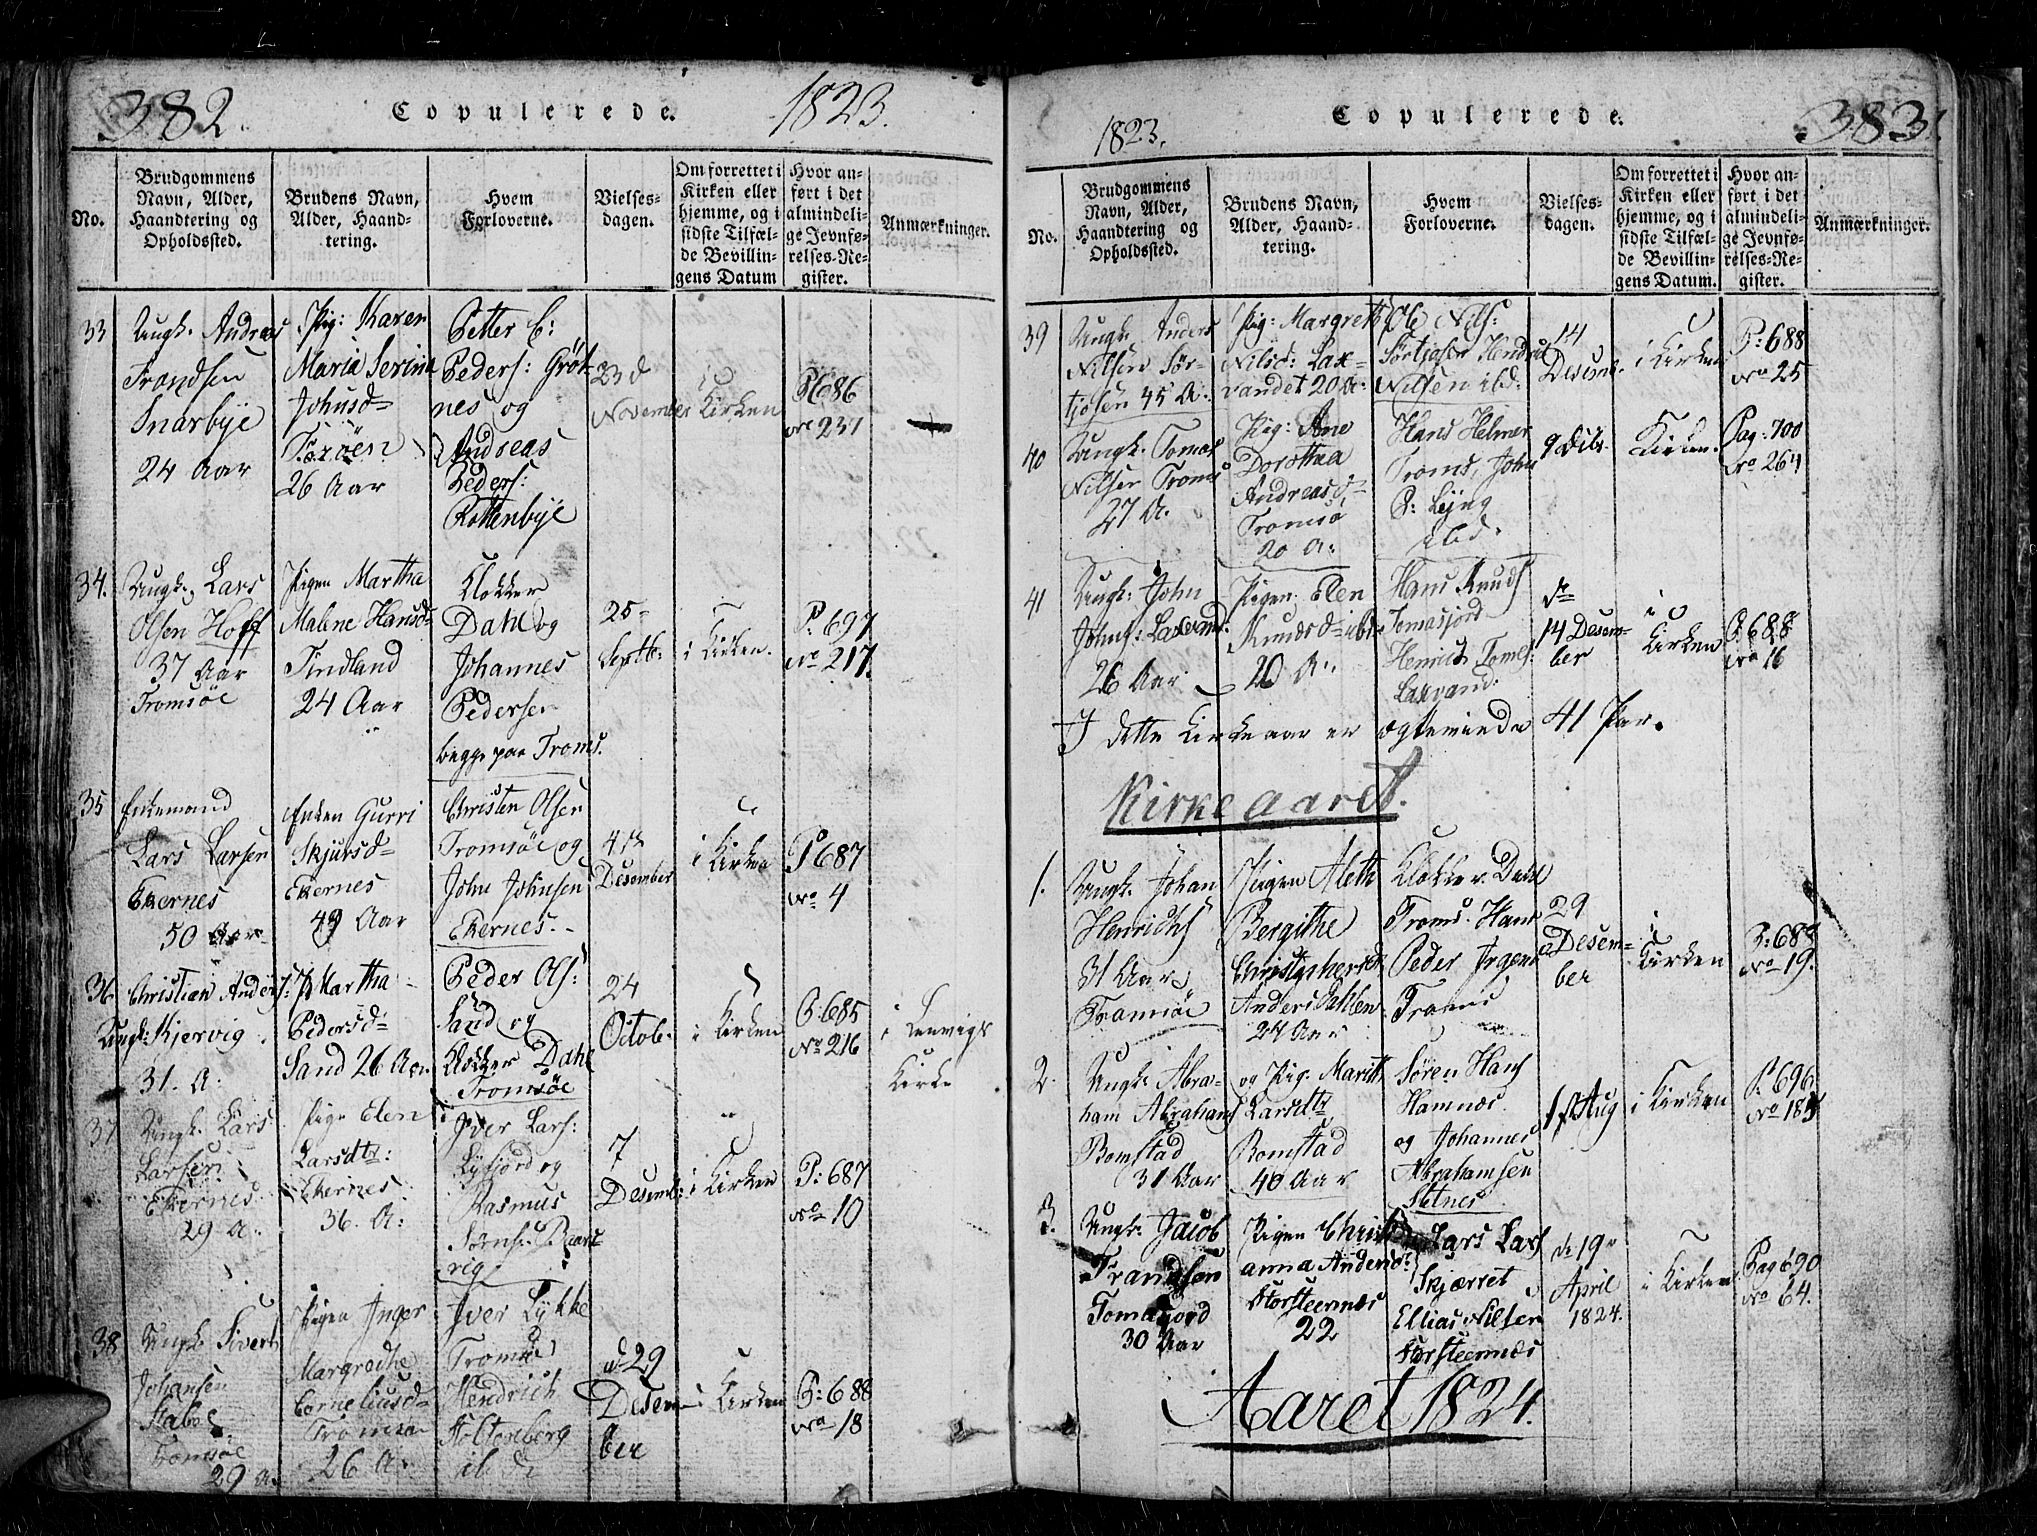 382.
Copulerede.
1823.
No.
Brudgommens Navn, Alder, Haandtering og Opholdssted.
Brudens Navn, Alder, Haandtering.
Hvem Forloverne.
Vielses-dagen.
Om forrettet i Kirken eller hjemme, og i sidste Tilfælde Bevillingens Datum
Hvor anført i det almindelige Jevnførelses-Register.
Anmærkninger.
33
Ungk. Andreas
Frondsen
Snarbye
24 Aar
Pig: Karen
Maria Serina
Johnsd=
Færøen
26 Aar
Petter C:
Peders: Gröt
nes og
Andreas
Peders:
Rottenbye
23 d
November
i Kirken
P 686
No 237
34.
Ungk. Lars
Olsen Hoff
37 Aar
Tromsöe
Pigen Martha
Malene Hansd=
Tindland
24 Aar
Klokker
Dahl og
Johannes
Pedersen
begge paa Troms.
25=
Septb:
i Kirken.
P: 697
No 217.
35
Enkemand
Lars Larsen
Ekernes
50 Aar
Enken Gurri
Skjursd=
Ekernes
49 Aar
Christen Olsen
Tromsöe og
John Johnsen
Ekernes.
4de
Desember
i Kirken
P 687
No 4
36
Christian Anders:
Ungk: Kjervig
31. A.
P Martha
Pedersd=
Sand 26 Aar
Peder Ols:
Sand og
Klokker Dahl
Tromsöe
24
Octob:
i Kirken
P: 685
No 216
i Lenvigs
Kirke
37
Ungk. Lars
Larsen
Ekernes
29 A.
Pige Elen
Larsdtr:
Ekernes
36. A:
Iver Lars:
Lyfjord og
Rasmus
7
Desemb:
i Kirken
P: 687
No 10
38
Ungk Sivert
Johansen
Tromsöe
29 A.
Pigen Inger
Margrethe
Corneliusd=
Tromsö
26 A.
Iver Lykke
Tromsöe
Hendrich
Holtersberg
ibd
d 29
Desem
ber
i Kirken
P: 688
No 18
1823.
Copulerede.
383.
No.
Brudgommens Navn, Alder, Haandtering og Opholdssted.
Brudens Navn, Alder, Haandtering.
Hvem Forloverne.
Vielses-dagen.
Om forrettet i Kirken eller hjemme, og i sidste Tilfælde Bevillingens Datum.
Hvor anført i det almindelige Jevnførelses-Register.
Anmærkninger.
39
Ungk. Anders
Nilsen Sör-
tjosen 45 A:
Pig: Margreth
Nilsd: Lax-
vandet 20 A:
Ole Nils:
Sörtjosen Hendrik
Nilsen ibd:
14
Desemb.
i Kirken
P: 688
No 25
40
Ungk. Tomas
Nilsen Troms
27 A.
Pig: Ane
Dorothea
Andreasd=
Tromsö
20 A:
Hans Helmer
Troms, John
P: Lyng
ibd.
9 Febr.
Kirken.
Pag: 700
No 264
41
Ungk: John
Johns: Laxvand
26 Aar
Pigen Elen
Knudsd= ibd
20 A:
Hans Knuds
Tomasjord
Henrich Tomes:
Laxvand.
14 Desem-
ber
i Kirken
P: 688
No 16
I dette Kirkeaar er ægteviede 41 Par.
Kirkeaaret.
1.
Ungk. Johan
Henrichs
31 Aar
Tromsöe
Pigen Aleth
Bergithe
Christophersd
Anders Dahlen
24 Aar
Klokker Dahl
Troms. Hans
Peder Jrgens
Troms
29
Desem-
ber
i Kirken
P: 688
No 19.
2.
Ungk. Abra-
ham Abrahams
Bomstad
31 Aar
og Pig. Marith
Larsdtr
Bomstad
40 Aar
Sören Hans
Hamnes
og Johannes
Abrahamsen
Setnes
1 Aug
i Kirken
P. 696
No 185
3.
Ungk. Jacob
Frandsen
Tomasjord
30 Aar
Pigen Christ
anna Andersd:
Storsteennæs
22
Lars Lars
Skjærret
Ellias Nilsen
Storsteennæs
d. 19
April
1824.
i Kirken
Pag 690
No 64.
Aaret 1824.